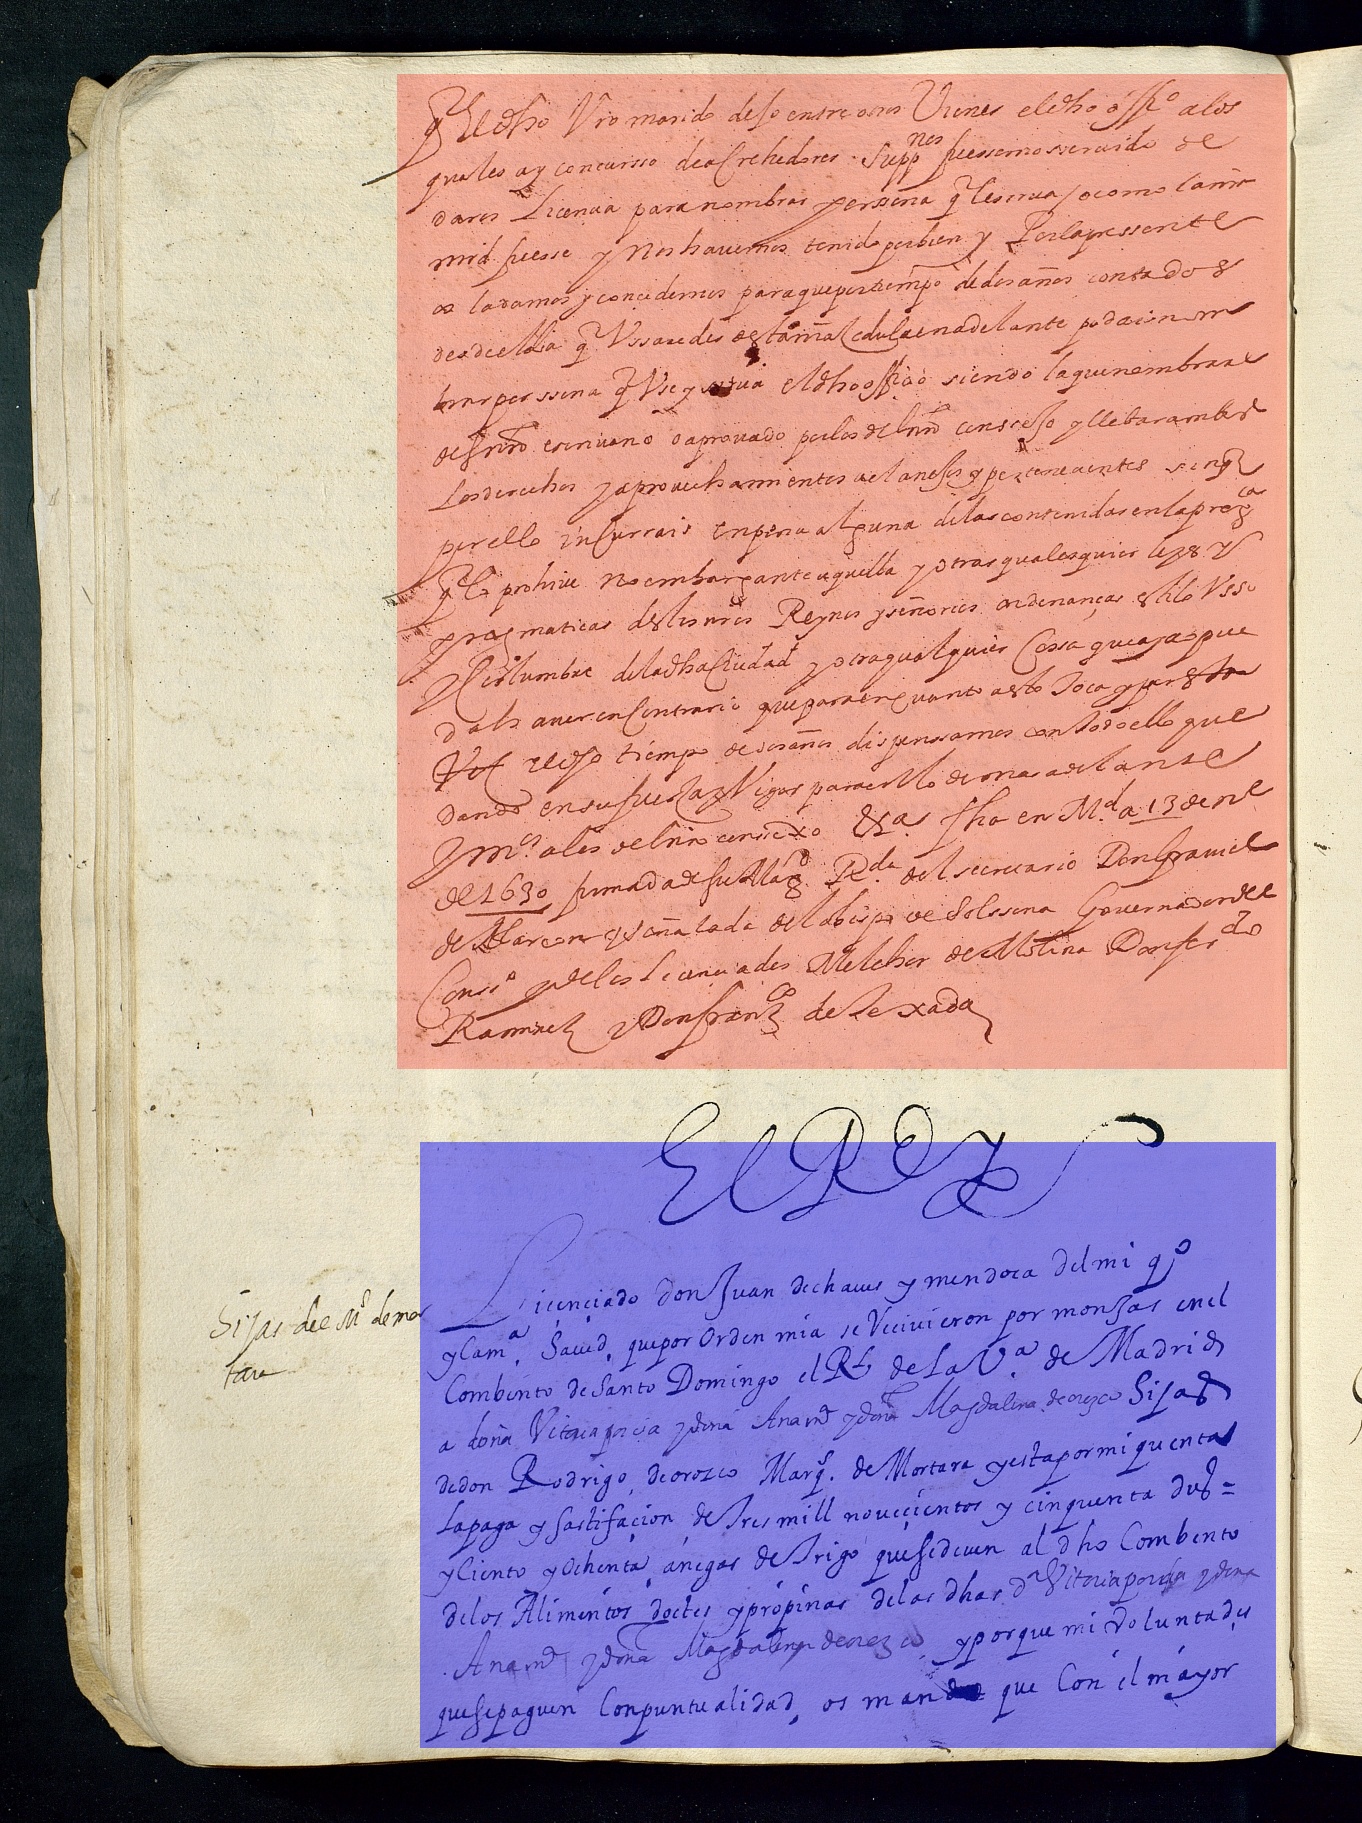 q̃ El dho Vro marido dejo entre otros Vienes el dho offiº a los
quales ay concursso de acrehedores. Supp.nos fuessemos servido de
daros Licencia para nombrar perssona q̃ le sirua / o como la nr̃a
mrd fuesse y Nos havemos tenido por bien y Por la pressente
os la damos y concedemos para que por tiempo de dos años contados
desde el dia q̃ Vssaredes desta mi cedula en adelante podais nom
brar perssona q̃ Vse y sirua el dho officio siendo la que nombrare
des nr̃o escriuano o aprouado por los del nr̃o conssejo y lleuar ambos
los derechos y aprovechamientos a el anejos y pertenecientes sin q̃
por ello incurrais en pena alguna de las contenidas en la preg.ca
q̃ lo prohiue no embargante aquella y otras qualesquier leyes y
pragmaticas destos nros Reynos y señorios ordenanças estilo Vsso
y Costumbre de la dha Ciudad y otra qualquier Cossa que aya o pue
da haver en Contrario que para en quanto a esto Toca y por esta
Vez el dho tiempo de dos años dispenssamos con todo ello que
dando en su fuerza y Vigor para en lo demas adelante
y m.º a los del nr̃o conssejo &.a fha en M.d a 13 de ene
de 1630 firmada de su Mag.d R.da del secretario Don Grauiel
de Alarcon y señalada del obispo de Solssona Gouernador del
Cons.º y de los Licenciados Melchor de Molina Don fer.do
Ramirez y Don fran.co de Texada
El Rey
Licenciado don Juan de chaues y mendoca del mi q.º
y Cam.a Saued, que por Orden mia se Reciuieron por monjas en el
Combento de Santo Domingo el R.l de la V.a de Madrid
a doña Vitoria porcia y doña Ana m.d y doña Magdalena de orozco Sijas
de don Rodrigo, de orozco Marq̃. de Mortara y esta por mi quenta
la paga y sastifacion de tres mill nouecientos y cinquenta dus =
y Ciento y Ochenta anegas de Trigo que se deuen al dho Combento
de los Alimentos doctes y propinas de las dhas D.a Vitoria porcia y doña
Ana m.d y doña Magdalena de orozco y porque mi Voluntad es
que se paguen Con puntualidad, os mando que Con el mayor
Sijas del M.s de mor
tara